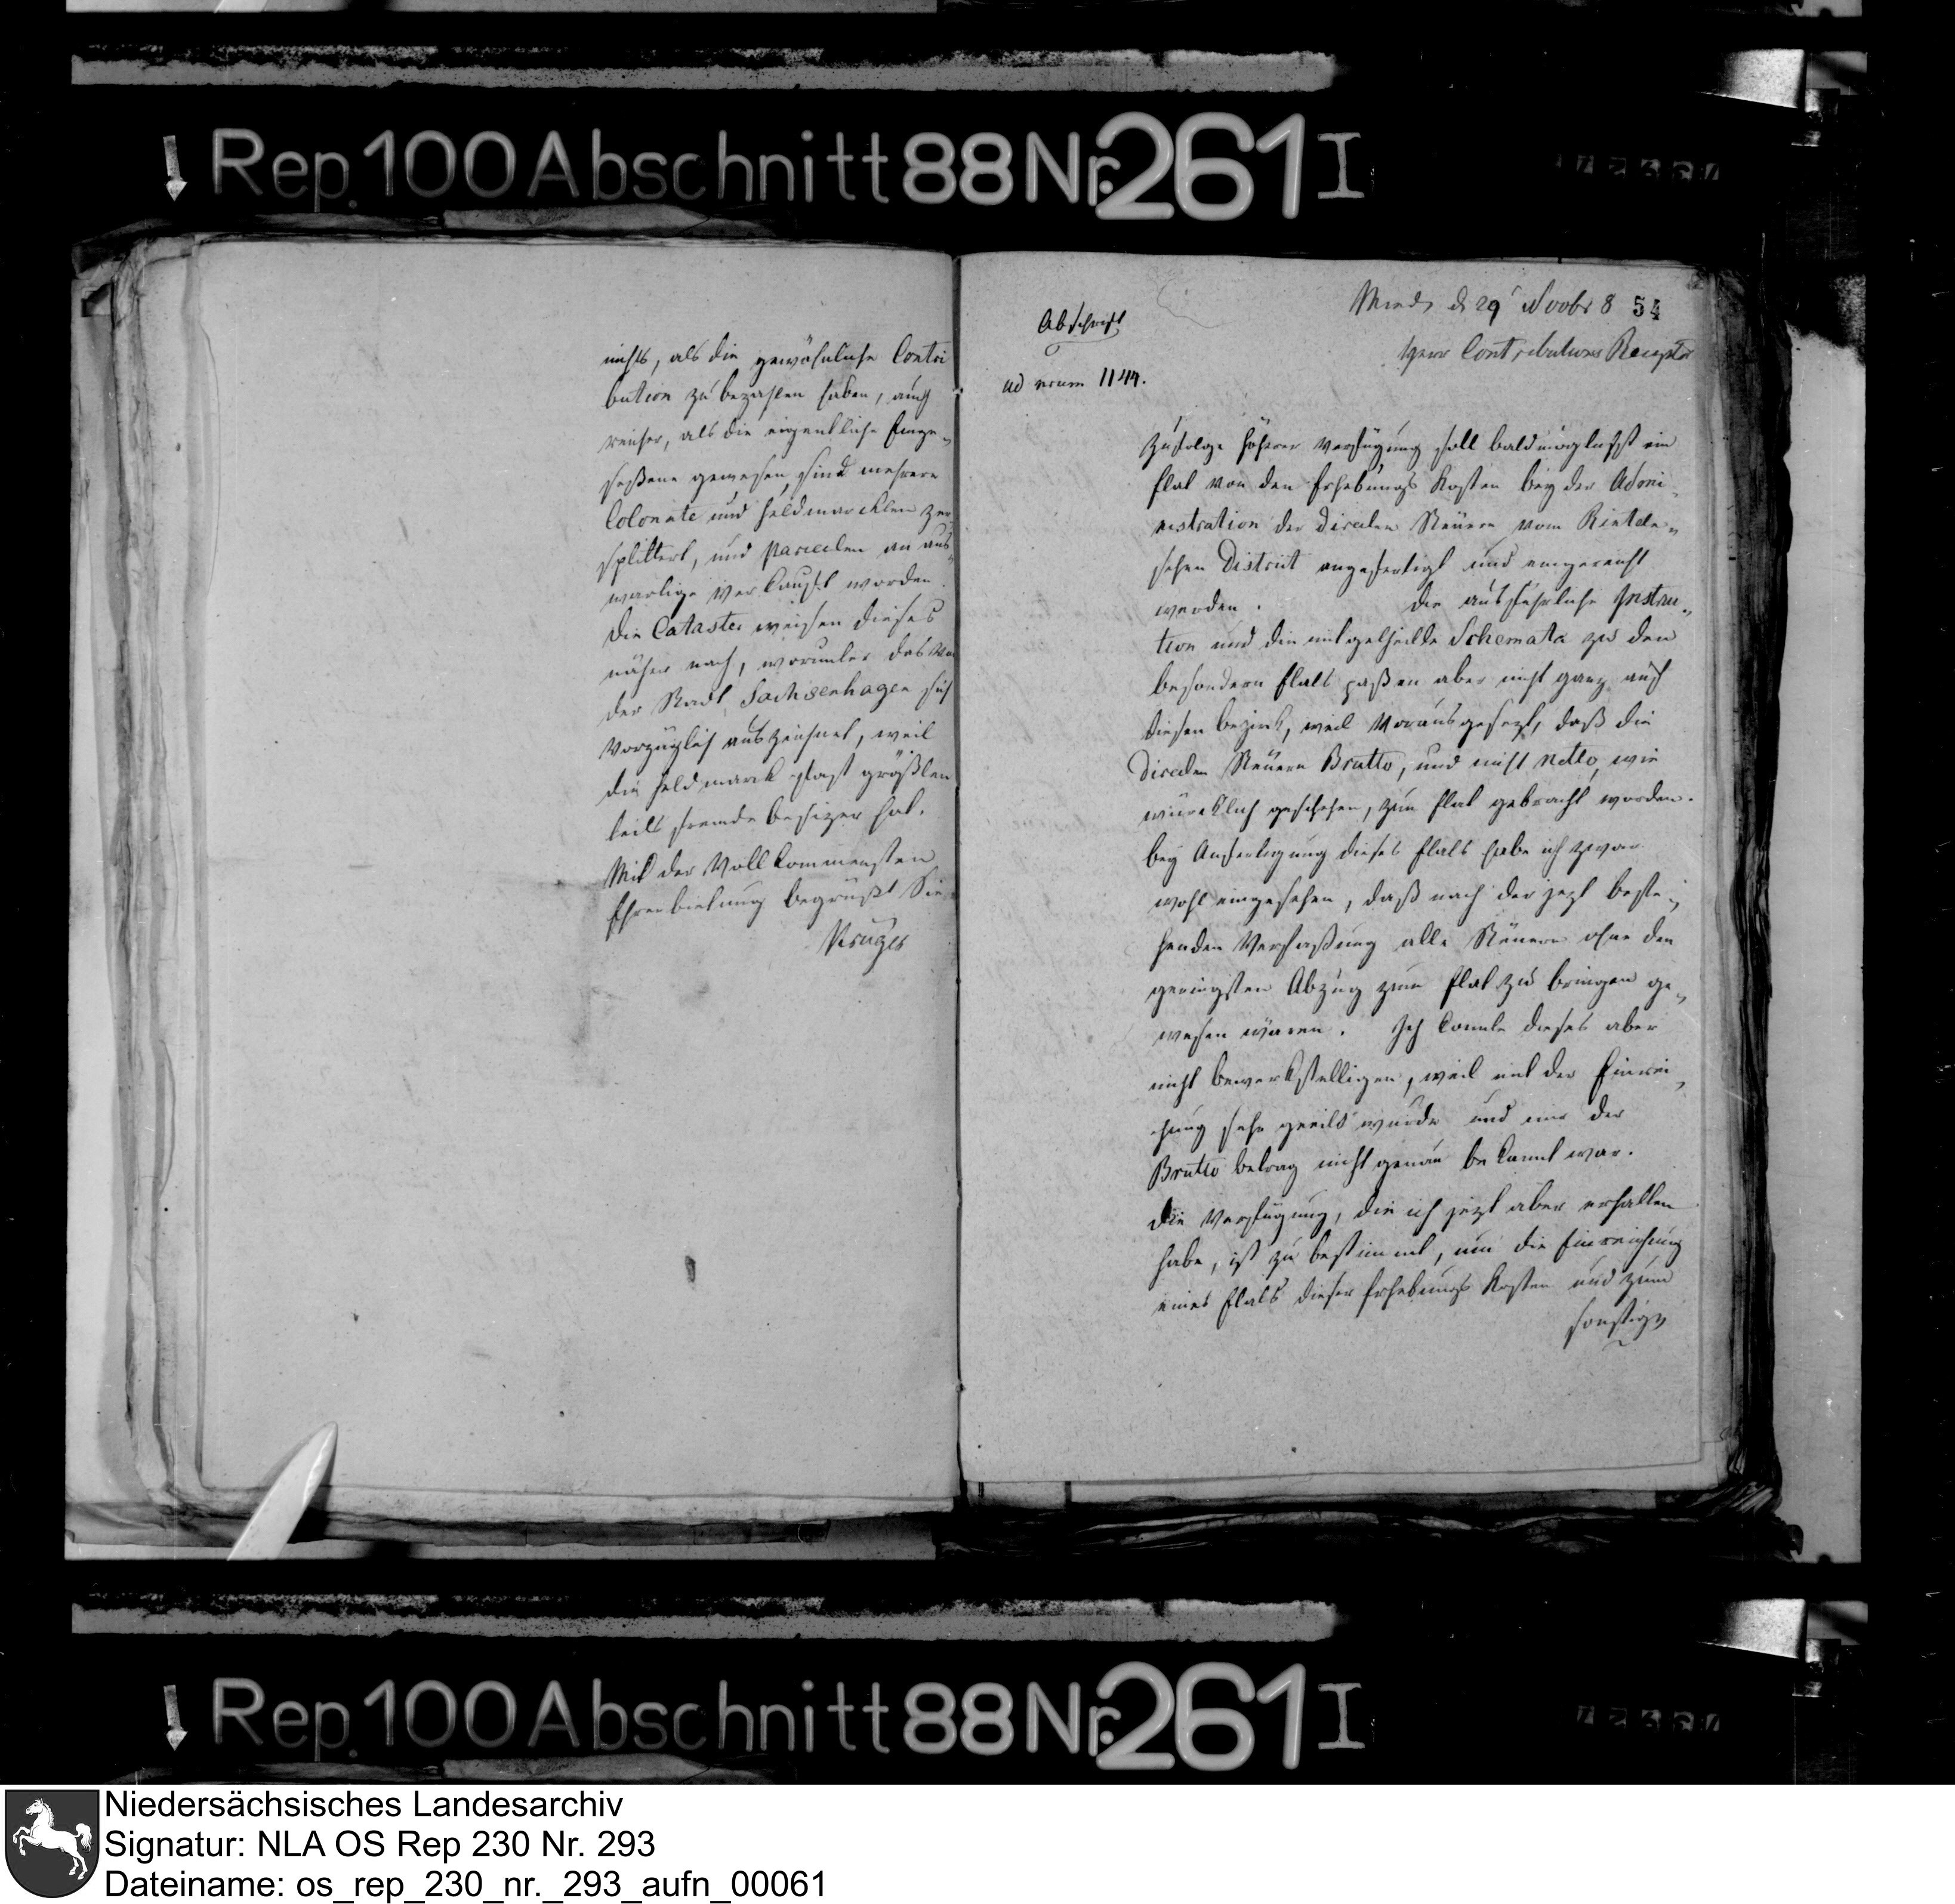 Rep. 100 Abschnitt 88 Nr. 261 I
nichts, als die gewöhnliche Contri
bution zu bezahlen haben, auch
reicher, als die eigentliche Einge„
seßene gewesen, sind mehrere
Colonate und Feldmarcken zer„
splittert, und Parcelen an aus„
wärtige verkauft worden.
Die Cataster weisen dieses
näher nach, worunter das von
der Stadt Sachsenhagen sich
vorzüglich auszeichnet, weil
die Feldmarck fast größten
teils fremde besizer hat.
Mit der vollkommensten
Ehrenbietung begrüßt Sie
Krüger
Abschrift
ad num 1144.
d 29 Novbr 8
54
Herr Contributions Receptor
Zufolge höherer Verfügung soll baldmöglichst ein
Etat von den Erhebungs Kosten bey der Admi„
nistration der directen Steuern vom Rinteln„
schen District angefertigt und eingereicht
werden. Die ausführliche Instru„
ction und die mitgetheilte Schemata zu den
besondern Etats paßen aber nicht ganz auf
diesen bezirk, weil vorausgesezt, daß die
directen Steuern Brutto, und nicht Netto, wie
würcklich geschehen, zum Etat gebracht worden.
bey Anfertigung dieses Etats habe ich zwar
wohl eingesehen, daß nach der jezt beste„
henden Verfaßung alle Steuern ohne den
geringsten Abzug zum Etat zu bringen ge„
wesen wären. Ich konnte dieses aber
nicht bewerkstelligen, weil mit der Einrei„
chung sehr geeilt wurde und mir der
Brutto betrag nicht genau bekannt war.
Die Verfügung, die ich jezt aber erhalten
habe, ist zu bestimmt, um die Einreichung
eines Etats dieser Erhebungs Kosten und zum
sonstigen
Rep. 100 Abschnitt 88 Nr. 261 I
Niedersächsisches Landesarchiv
Signatur: NLA OS Rep 230 Nr. 293
Dateiname: os_rep_230_nr._293_aufn_00061